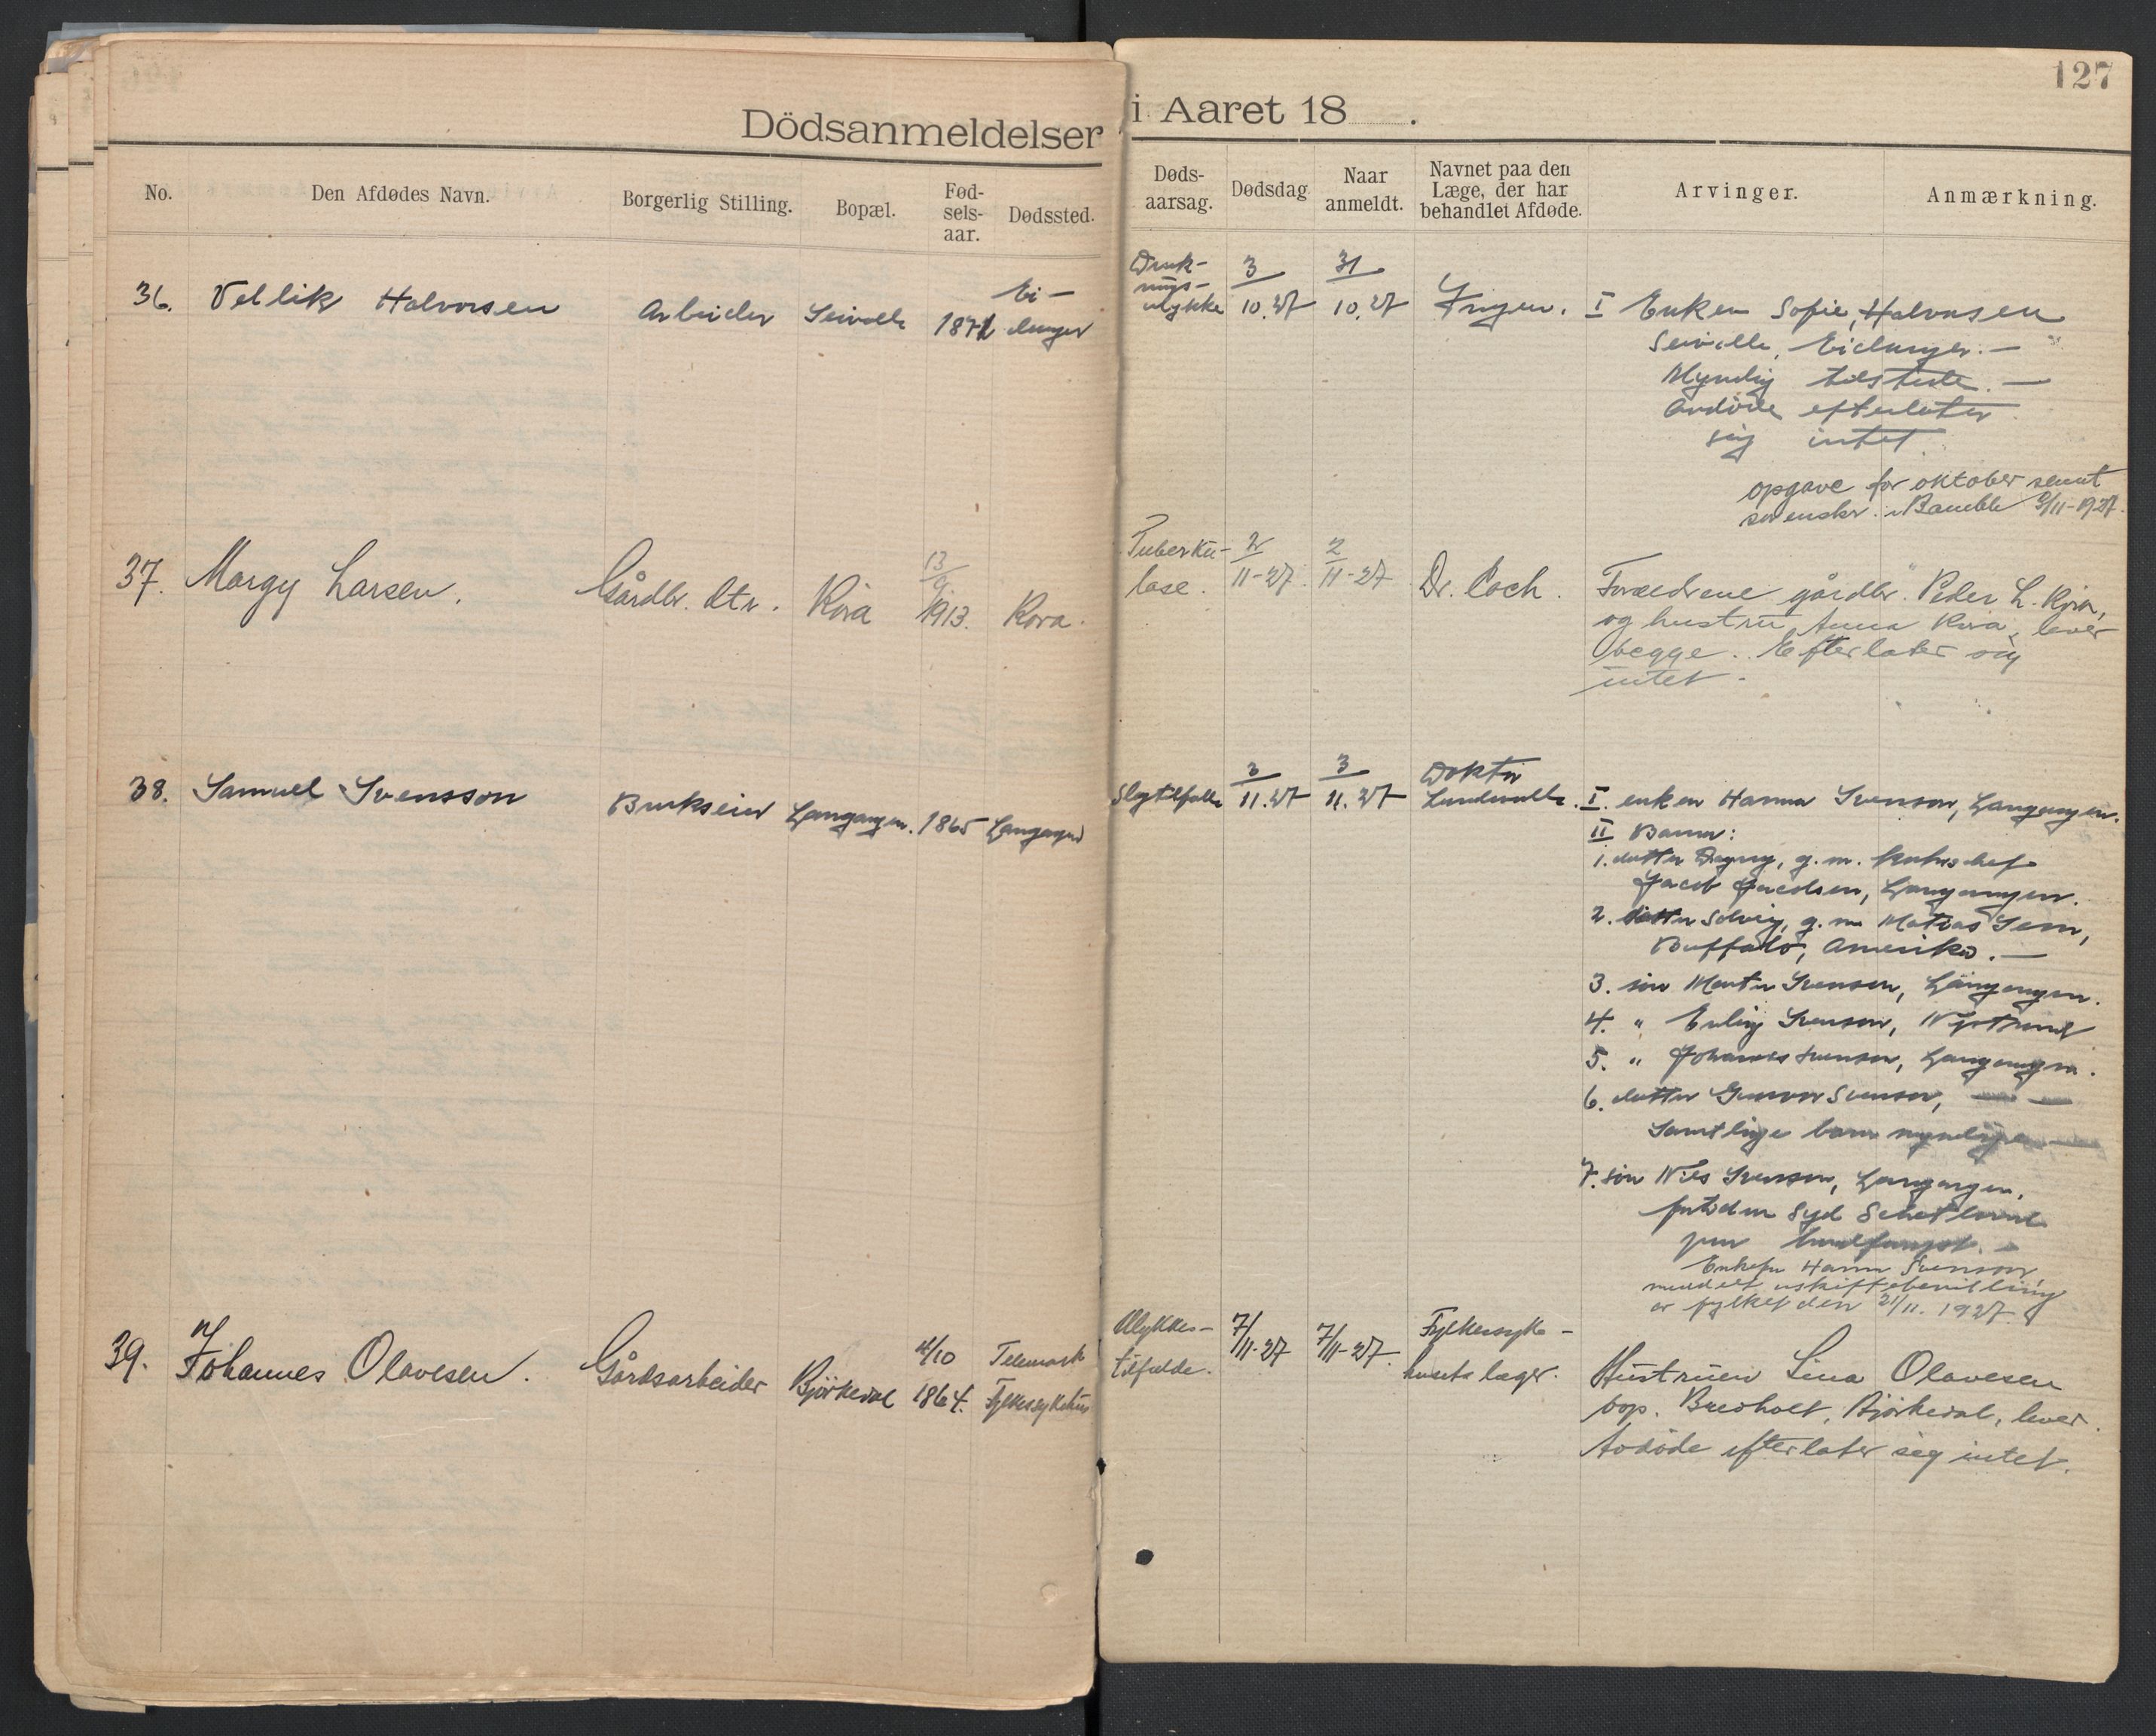 127
Dödsanmeldelser i Aaret 18 .
No.
Den Afdødes Navn.
Borgerlig Stilling.
Bopæl.
Fød-
sels-
aar.
Dødssted.
Døds-
aarsag.
Dødsdag
Naar
anmeldt.
Navnet paa den
Læge, der har
behandlet Afdøde.
Arvinger.
Anmærkning.
36. Vellik Halvorsen
Arbeider
1871
Druk-
nings-
ulykke
3
10.27
31
10.27
Ingen.
I Enken Sofie Halvorsen
Myndig tilstede. —
Avdöde efterlater
sig intet
opgave for oktober sendt
sorenskr. i Bamble 3/11-1927.
37. Margy Larsen.
Gårdbr. dtr.
Rörå
13
9
1913.
Rörå.
Tuberku-
lose.
2
11-27.
2
11-27
Dr. Coch.
Forældrene gårdbr. Peder L. Rörå,
og hustru Anna Rörå, lever
begge. Efterlater sig
intet.
38. Samuel Svensson
Brukseier
Langangen.
1865
Langangen
Slagtilfælle
3
11.27
3
11.27
Doktor
I. enken Hanna Svenson, Langangen.
II Barn:
1. datter Dagny, g. m.
Jacob Jacobsen, Langangen.
2. datter Solveig, g. m. Matias Sem,
Buffalo, Amerika. —
3. sön Martin Svenson, Langangen.
4. " Erling Svenson,
5. " Johannes Svenson, Langangen.
6. datter Gunvor Svenson, — —
Samtlige barn myndige
7. sön Nils Svenson, Langangen,
fortiden Syd Schetland
paa hvalfangst. —
Enkefru Hanna Svenson
meddelt uskiftebevilling
av fylket den 21/11. 1927
39. Johannes Olavesen.
Gårdsarbeider
Björkedal
/10
1864.
Telemark
Fylkessykehus
Ulykkes-
tilfælde.
7/11-27
7/11-27.
Fylkessyke-
husets læger.
Hustruen Lina Olavesen
bop. Björkedal, lever.
Avdöde efterlater seg intet.